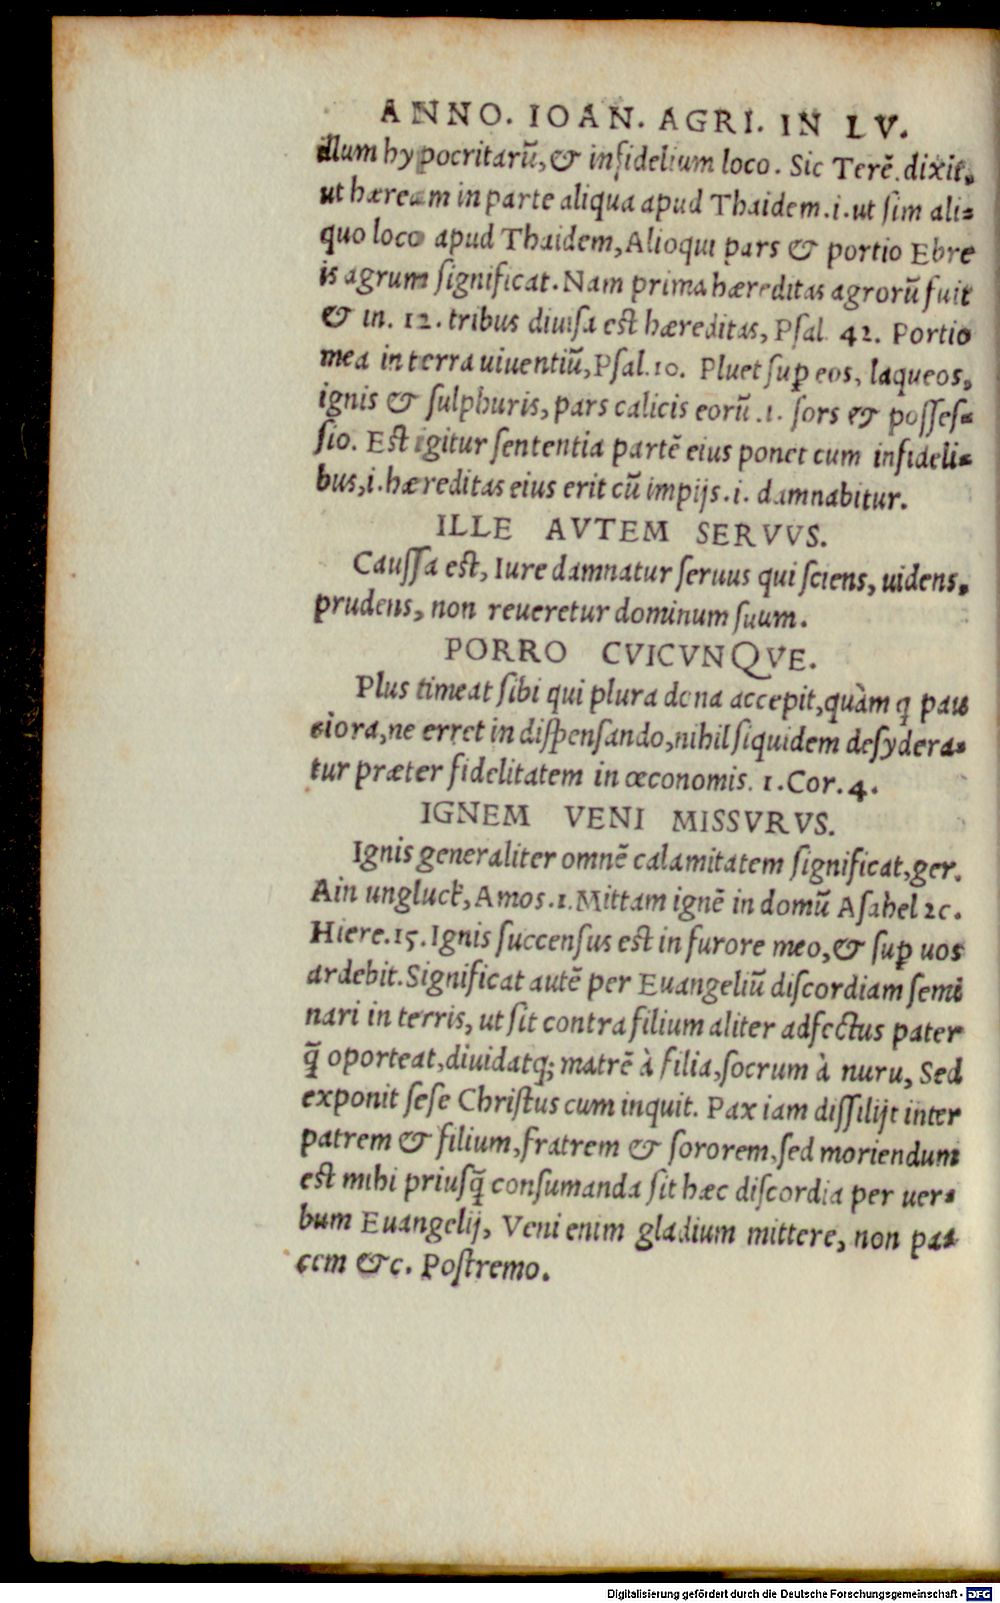 ANNO. IOAN. AGRI. IN LV.
illum hypocritarū, & infidelium loco. Sic Terē. dixit,
ut hæream in parte aliqua apud Thaidem .i. ut sim ali=
quo loco apud Thaidem, Alioqui pars & portio Ebre
is agrum significat. Nam prima hæreditas agrorū fuit
& in .12. tribus diuisa est hæreditas, Psal. 42. Portio
mea in terra uiuentiū, Psal. 10. Pluet suꝑ eos, laqueos,
ignis & sulphuris, pars calicis eorū .i. sors & posses=
sio. Est igitur sententia partē eius ponet cum infideli=
bus, i. hæreditas eius erit cū impijs .i. damnabitur.
ILLE AVTEM SERVVS.
Caussa est, Iure damnatur seruus qui sciens, uidens,
prudens, non reueretur dominum suum.
PORRO CVICVNQVE.
Plus timeat sibi qui plura dona accepit, quàm q pau
ciora, ne erret in dispensando, nihil siquidem desydera=
tur præter fidelitatem in œconomis. 1. Cor. 4.
IGNEM VENI MISSVRVS.
Ignis generaliter omnē calamitatem significat, ger.
Ain ungluck, Amos .1. Mittam ignē in domū Asahel ꝛc.
Hiere. 15. Ignis succensus est in furore meo, & suꝑ uos
ardebit. Significat autē per Euangeliū discordiam semi
nari in terris, ut sit contra filium aliter adfectus pater
q̃ oporteat, diuidatq; matrē à filia, socrum à nuru, Sed
exponit sese Christus cum inquit. Pax iam dissilijt inter
patrem & filium, fratrem & sororem, sed moriendum
est mihi priusq̃ consumanda sit hæc discordia per uer=
bum Euangelij, Veni enim gladium mittere, non pa=
cem &c. Postremo.
Digitalisierung gefördert durch die Deutsche Forschungsgemeinschaft - DFG